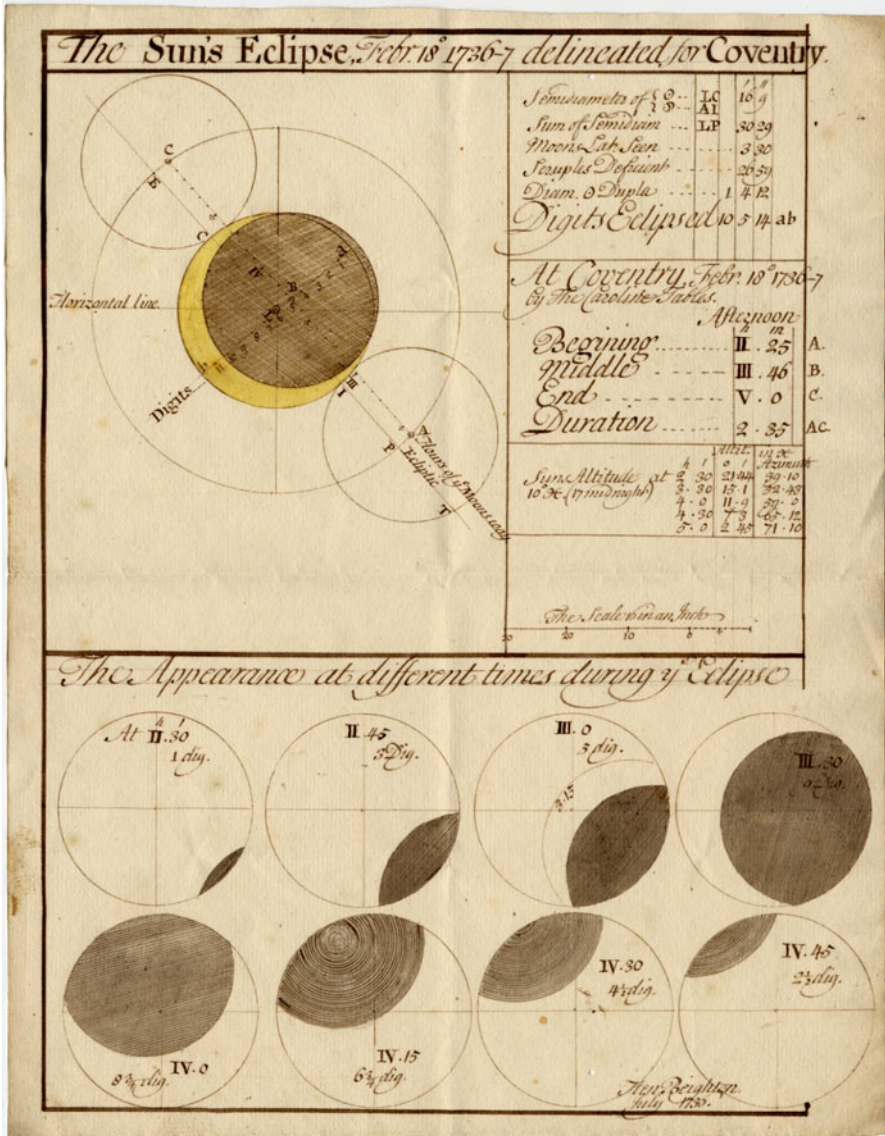 The Sun's Eclipse, Febr. 18° 1736-7 delineated for Coventry.
C
C
Horizontal line
B
Digits
P
Ecliptic
T
Hours of yᵉ Moons way
Semidiameter of ☉ LC 16 9
☽ AI
Sum of Semidiam LP 30 29
Moons Lat. Seen 3 30
Scruples Deficient 26 59
Diam. ☉ Dupla 1 4 12
Digits Eclipsed 10 5 14 ab
At Coventry, Febr. 18° 1736-7
by The Caroline Tables.
Afternoon
h m
Begining II . 25 A.
Middle III . 46 B.
End V . 0 C.
Duration 2 . 35 AC.
Altit. Azimuth
h ′ ° ′
Suns Altitude at 2 30 21 44 39 . 10
10° ♓ (17 midnight) 3 . 30 15 . 1 52 . 43
4 . 0 11 . 9 59 . 0
4 . 30 7 3 65 . 12
5 . 0 2 45 71 . 10
The Scale in an Inch
20 10
The Appearance at different times during yᵉ Eclipse
At II . 30
1 dig.
II 45
3 Dig.
III . 0
5 dig.
3.15
III . 30
9 Dig.
IV . 0
8 ¾ dig.
IV . 15
6 ¾ dig.
IV . 30
4 ½ dig.
IV . 45
2 ½ dig.
Hen. Beighton.
July 1736.